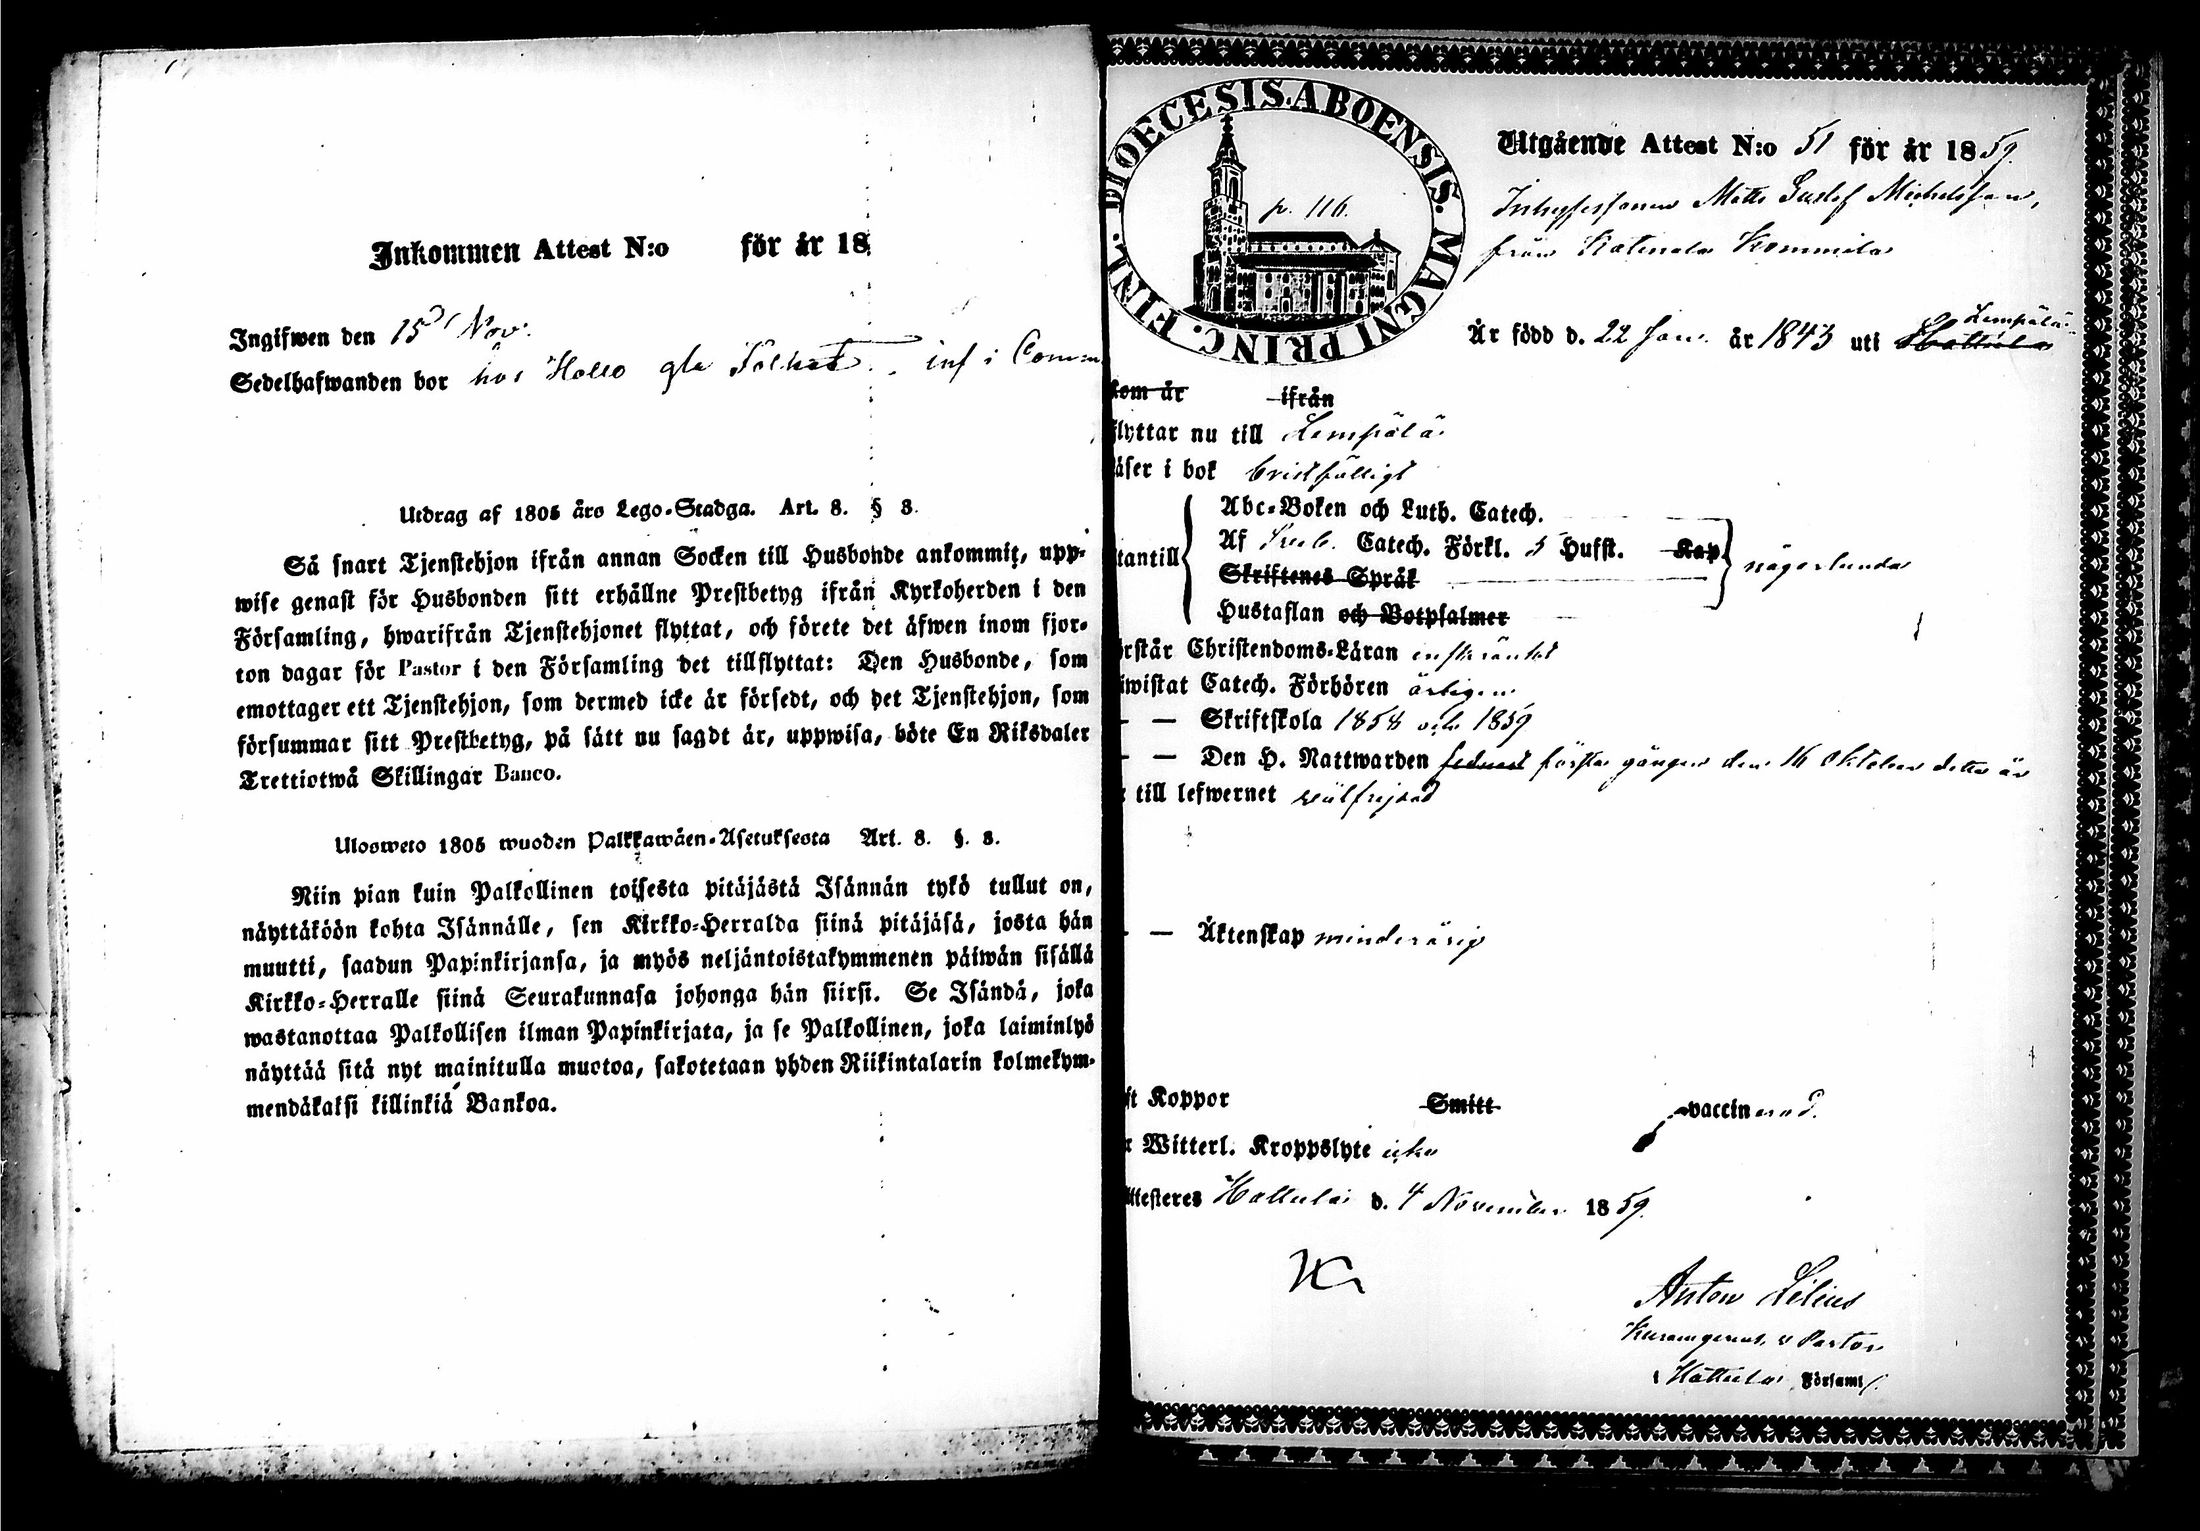 Inkommen Attest N:o för år 18
Ingifwen den 15 Nov.
Sedelhafwanden bor hos Hollo inf i Comm
Utdrag af 1805 års Lego-Stadga. Art. 8. § 3.
Så snart Tjenstehjon ifrån annan Socken till Husbonde ankommit, upp-
wise genast för Husbonden sitt erhållne Prestbetyg ifrån Kyrkoherden i den
Församling, hwarifrån Tjenstehjonet flyttat, och förete det äfwen inom fjor-
ton dagar för Pastor i den Församling det tillflyttat: Den Husbonde, som
emottager ett Tjenstehjon, som dermed icke är försedt, och det Tjenstehjon, som
försummar sitt Prestbetyg, på sätt nu sagdt är, uppwisa, böte En Riksdaler
Trettiotwå Skillingar Banco.
Ulosweto 1805 wuoden Palkkawäen-Asetuksesta Art. 8. §. 3.
Niin pian kuin Palkollinen toisesta pitäjästä Isännän tykö tullut on,
näyttäköön kohta Isännälle, sen Kirkko-Herralda siinä pitäjäsä, josta hän
muutti, saadun Papinkirjansa, ja myös neljäntoistakymmenen päiwän sisällä
Kirkko-Herralle siinä Seurakunnasa johonga hän siirsi. Se Isändä, joka
wastanottaa Palkollisen ilman Papinkirjata, ja se Palkollinen, joka laiminlyö
näyttää sitä nyt mainitulla muotoa, sakotetaan yhden Riikintalarin kolmekym-
mendäkaksi killinkiä Bankoa.
DIOECESIS. ABOENSIS. MAGNI PRINC. FINL.
p. 116.
Utgående Attest N:o 51 för år 1859.
Inhysessonen Matts Gustaf Michelsson,
från Katinala Kommila
Är född d. 22 Jan. år 1843 uti Hattula Lempälä
kom år ifrån
flyttar nu till Lempälä
läser i bok bristfälligt
Abc-Boken och Luth. Catech.
utantill Af Sveb. Catech. Förkl. 5 Hufst. Kap. någorlunda
Skriftenes Språk
Hustaflan och Botpsalmer
örstår Christendoms-Läran inskränkt
iwistat Catech. Förhören årligen
— — Skriftskola 1858 och 1859
— — Den H. Nattwarden första gången den 16 Oktober detta år
r till lefwernet välfrejdad
— — Äktenskap minderårig
ft Koppor Smitt vaccinerad.
r Witterl. Kroppslyte icke
ttesteres Hattula d. 4 November 1859.
Anton Lilius
v Pastor
i Hattula Församl.